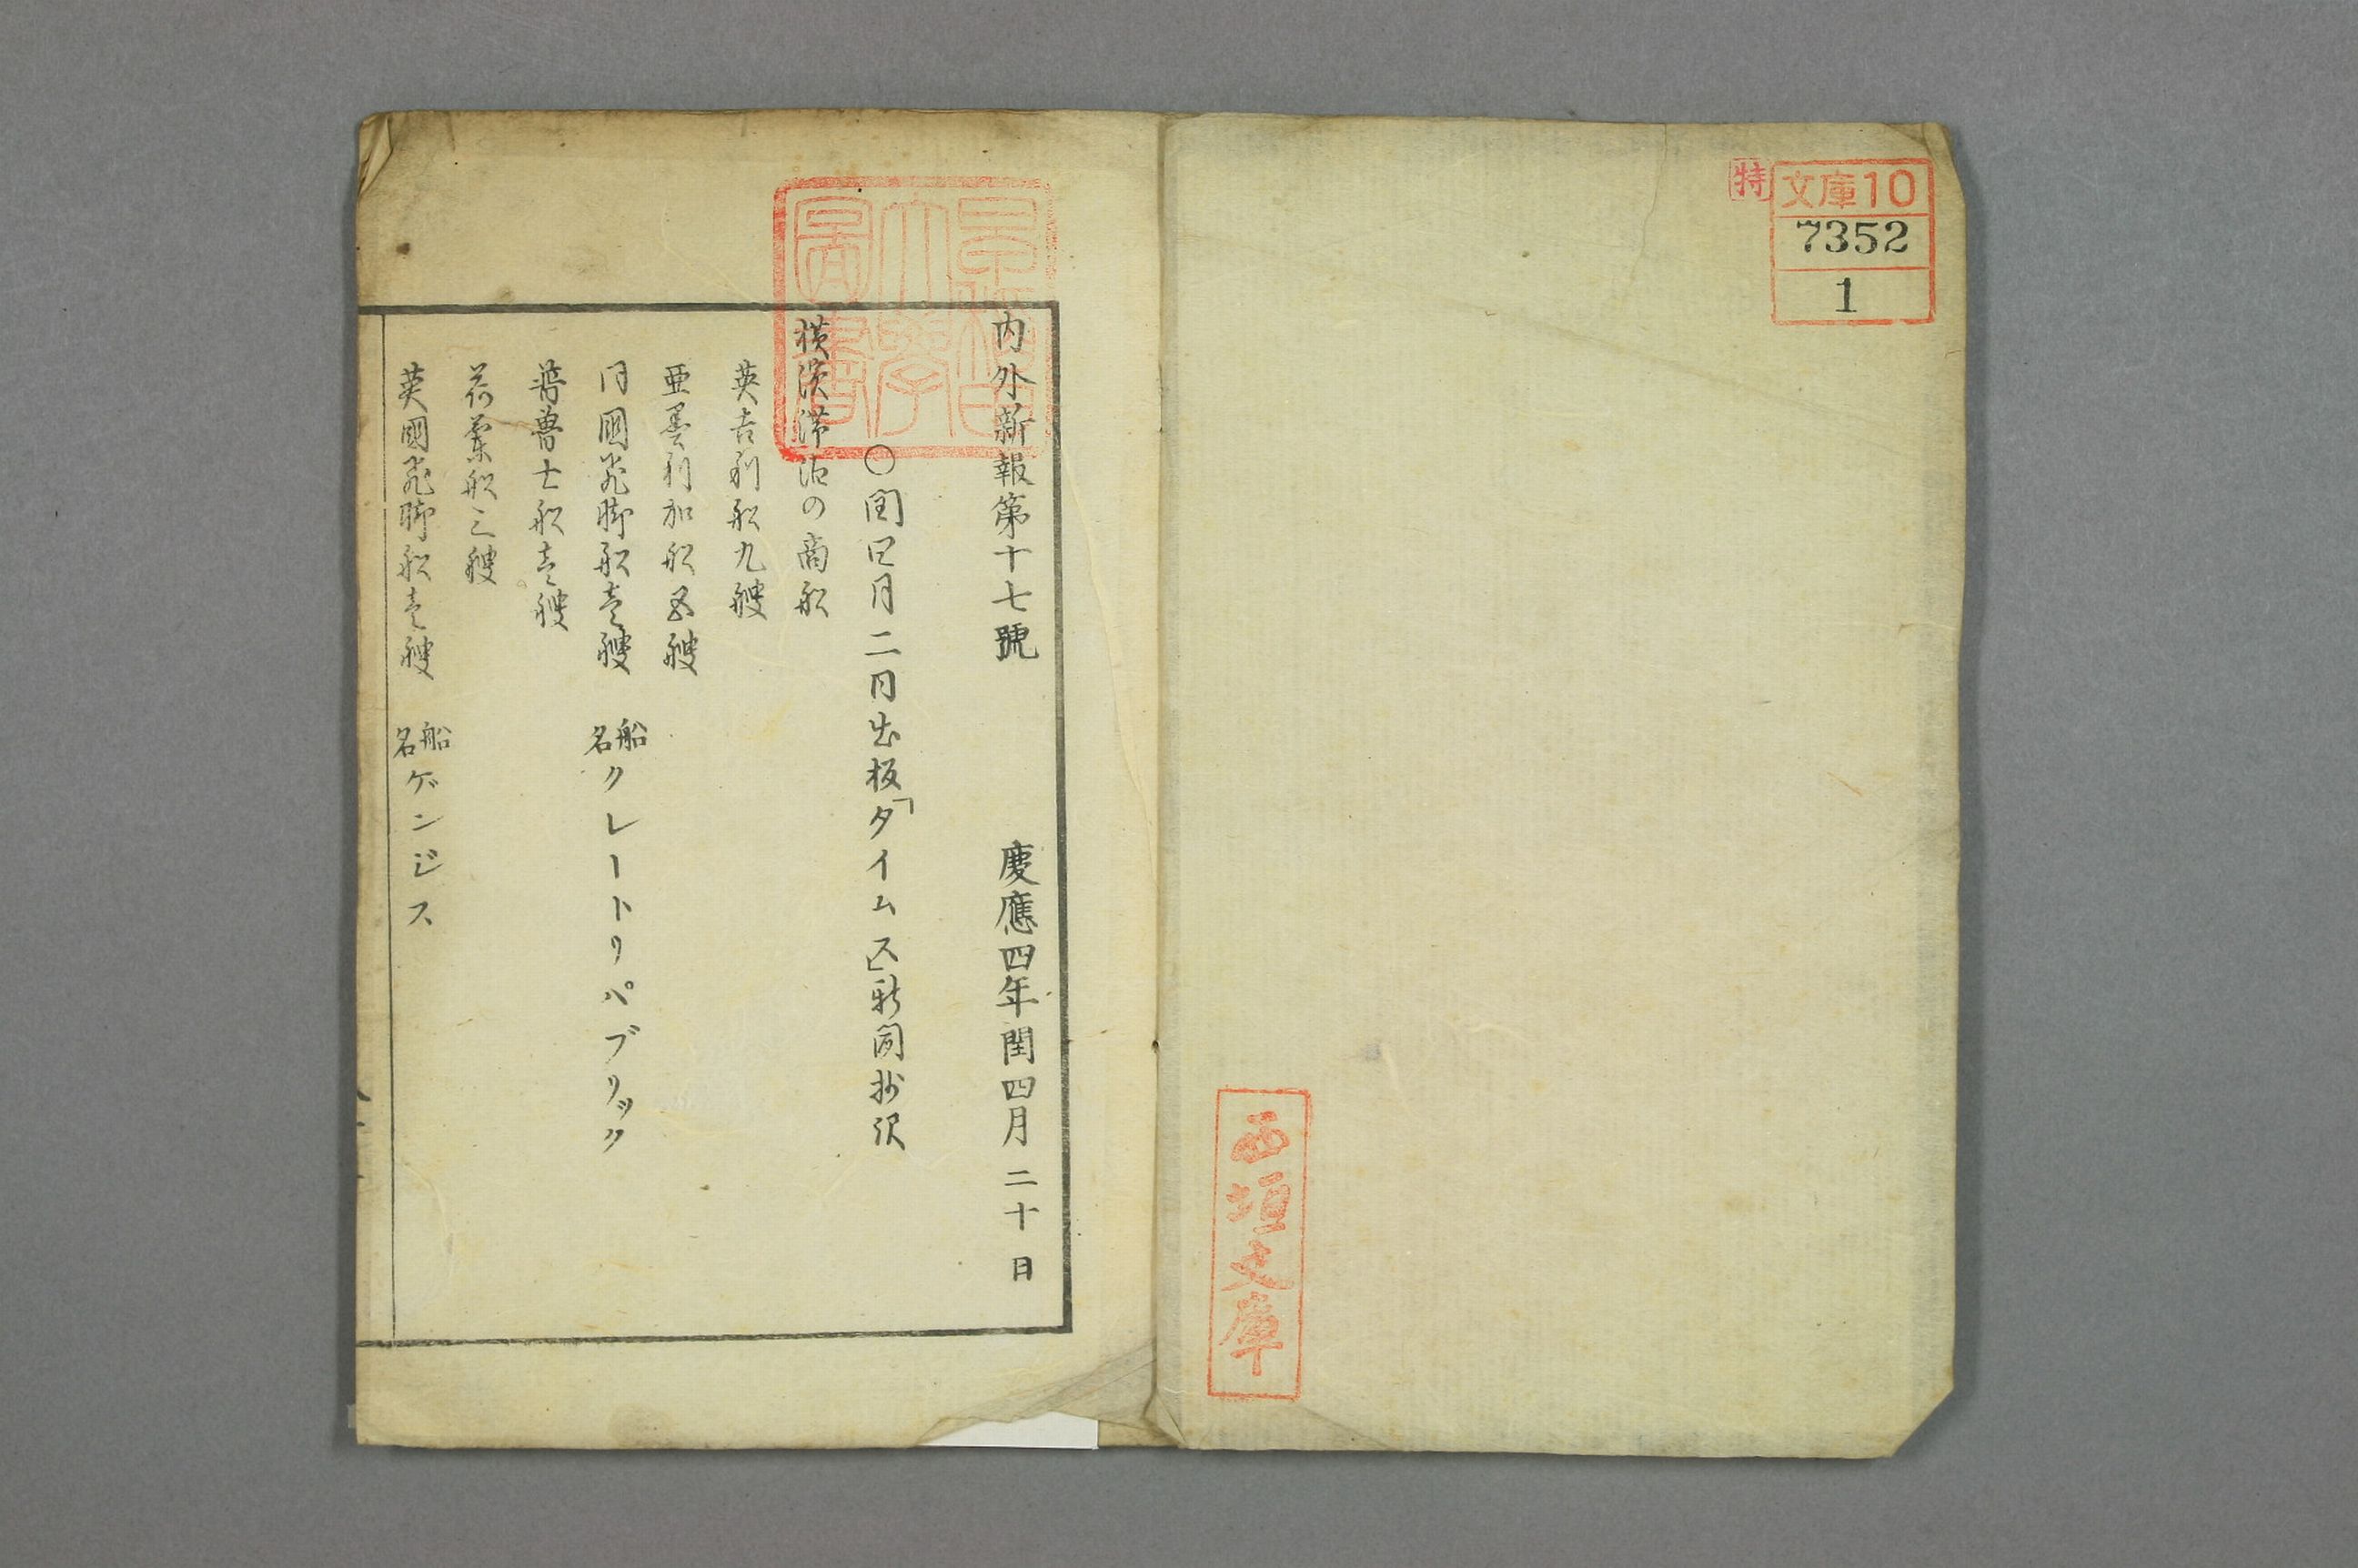 特
文庫10
7352
1
西垣文庫
早稲田大學圖書
内外新報第十七號 慶應四年閏四月二十日
○閏四月二日出板「タイムス」新聞抄訳
横濱滞泊の商船
英吉利船九艘
亜墨利加船五艘
同國飛脚船壱艘 船名クレートリパブリック
普魯士船壱艘
荷蘭船三艘
英國飛脚船壱艘 船名ゲンジス